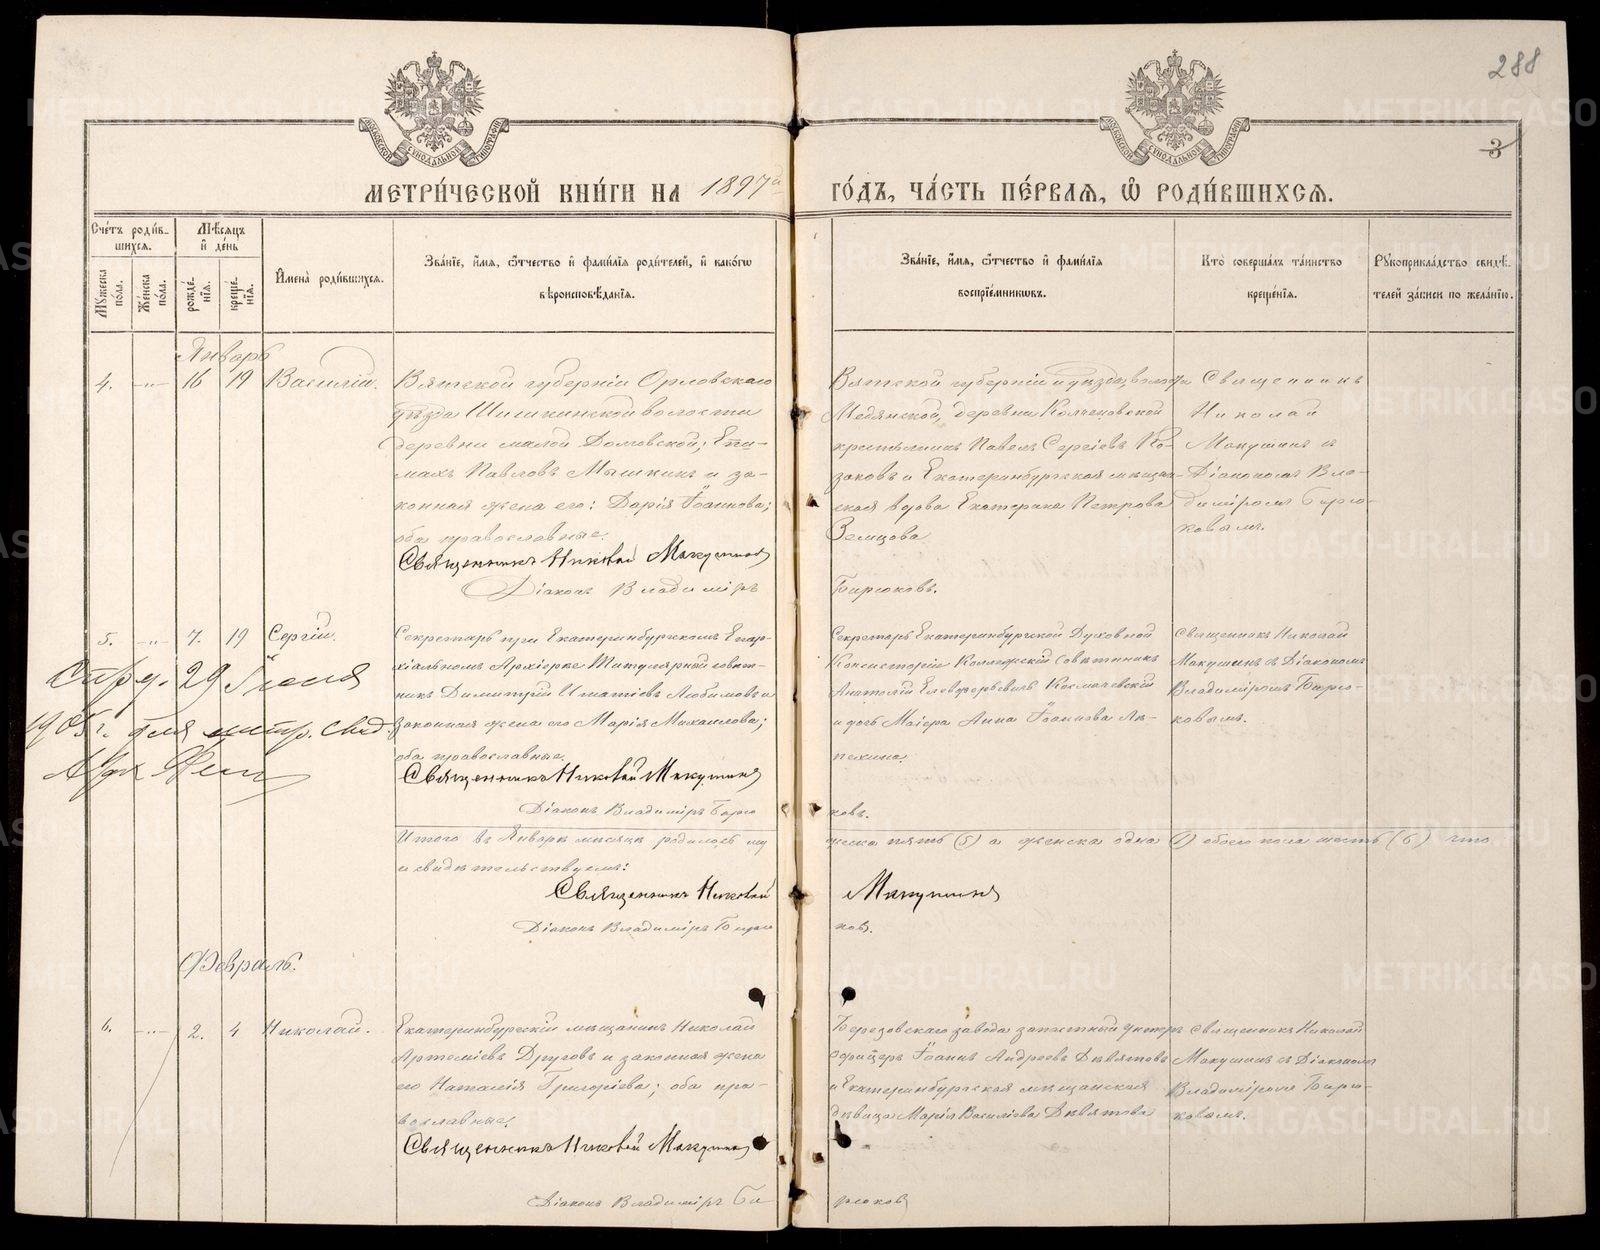 288
3
МОСКОВСКОЙ СУНОДАЛЬНОЙ ТИПОГРАФІИ
МОСКОВСКОЙ СУНОДАЛЬНОЙ ТИПОГРАФІИ
МЕТРИ́ЧЕСКОЙ КНИ́ГИ НА 1897й ГО́ДЪ, ЧА́СТЬ ПЕ́РВАѦ, Ѿ РОДИ́ВШИХСѦ.
Сче́тъ роди́в-
шихсѧ.
Мѣ́сѧцъ
и҆ де́нь
Мꙋ́жеска по́ла.
Же́нска по́ла.
рожде́-
нїѧ.
креще́-
нїѧ.
И҆мена̀ роди́вшихсѧ.
Зва́нїе, и҆́мѧ, ѻ҆́тчество и҆ фами́лїѧ роди́телей, и҆ како́гѡ
вѣроисповѣ́данїѧ.
Зва́нїе, и҆́мѧ, ѻ҆́тчество и҆ фами́лїѧ
воспрїе́мникѡвъ.
Кто̀ соверша́лъ та́инство
креще́нїѧ.
Рꙋкоприкла́дство свидѣ́-
телей за́писи по жела́нїю.
Январь
4. -„- 16 19 Василій.
Вятской губерніи Орловскаго
уѣзда Шишкинской волости
деревни малой Долговской; Епи-
махъ Павловъ Мышкинъ и за-
конная жена его: Дарія Іоаннова;
оба православные.
Священникъ Николай Макушинъ
Діаконъ Владиміръ Бирюковъ.
Вятской губерніи и уѣзда, волости
Медянской, деревни Колчановской
крестьянинъ Павелъ Сергіевъ Ко-
заковъ и Екатеринбургская мѣщан-
ская вдова Екатерина Петрова
Земцова
Священникъ
Николай
Макушинъ съ
Діакономъ Вла-
диміромъ Бирю-
ковымъ.
5. -„- 7. 19 Сергій.
Секретарь при Екатеринбургскомъ Епар-
хіальномъ Архіереѣ Титулярный совѣт-
никъ Димитрій Игнатіевъ Любимовъ и
законная жена его Марія Михаилова;
оба православные.
Священникъ Николай Макушинъ
Діаконъ Владиміръ Бирюковъ.
Секретарь Екатеринбургской Духовной
Консисторіи Коллежскій совѣтникъ
Анатолій Елевферьевичъ Космачевскій
и дочь Маіора Анна Іоаннова Ля-
пехина
Священникъ Николай
Макушинъ съ Діакономъ
Владиміромъ Бирю-
ковымъ.
29 Іюня
1905 г. для метр. свид.
Итого въ Январѣ мѣсяцѣ родилось му
жеска пять (5) а женска одна (1) обоего пола шесть (6) что
и свидѣтельствуемъ:
Священникъ Николай Макушинъ
Діаконъ Владиміръ Бирюковъ.
Февраль.
6. -„- 2. 4 Николай.
Екатеринбургскій мѣщанинъ Николай
Артеміевъ Друговъ и законная жена
его Наталія Григоріева; оба пра-
вославные.
Священникъ Николай Макушинъ
Діаконъ Владиміръ Бирюковъ
Березовскаго завода запасный унтеръ
офицеръ Іоаннъ Андреевъ Дѣвятовъ
и Екатеринбургская мѣщанская
дѣвица Марія Василіева Дѣвятова
Священникъ Николай
Макушинъ съ Діакономъ
Владиміромъ Бирю-
ковымъ.
METRIKI.GASO-URAL.RU